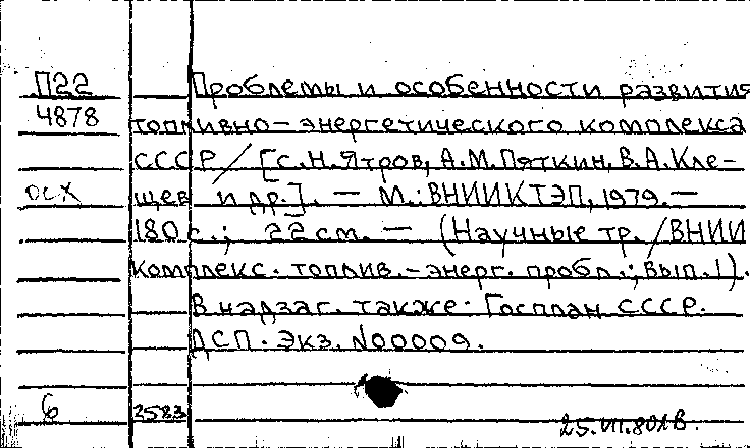 П22 Проблемы и особенности развития
4878 топливно-энергетического комплекса
СССР / [С.Н. Ятров, А.М. Пяткин, В.А. Кле-
ОСХ щев и др.]. — М.: ВНИИКТЭП, 1979. —
180 с.; 22 см. — (Научные тр. / ВНИИ
комплекс. топлив.-энерг. пробл.; Вып. 1).
В надзаг. также: Госплан СССР.
ДСП. Экз. N00009.
6 2583
25.VII.80